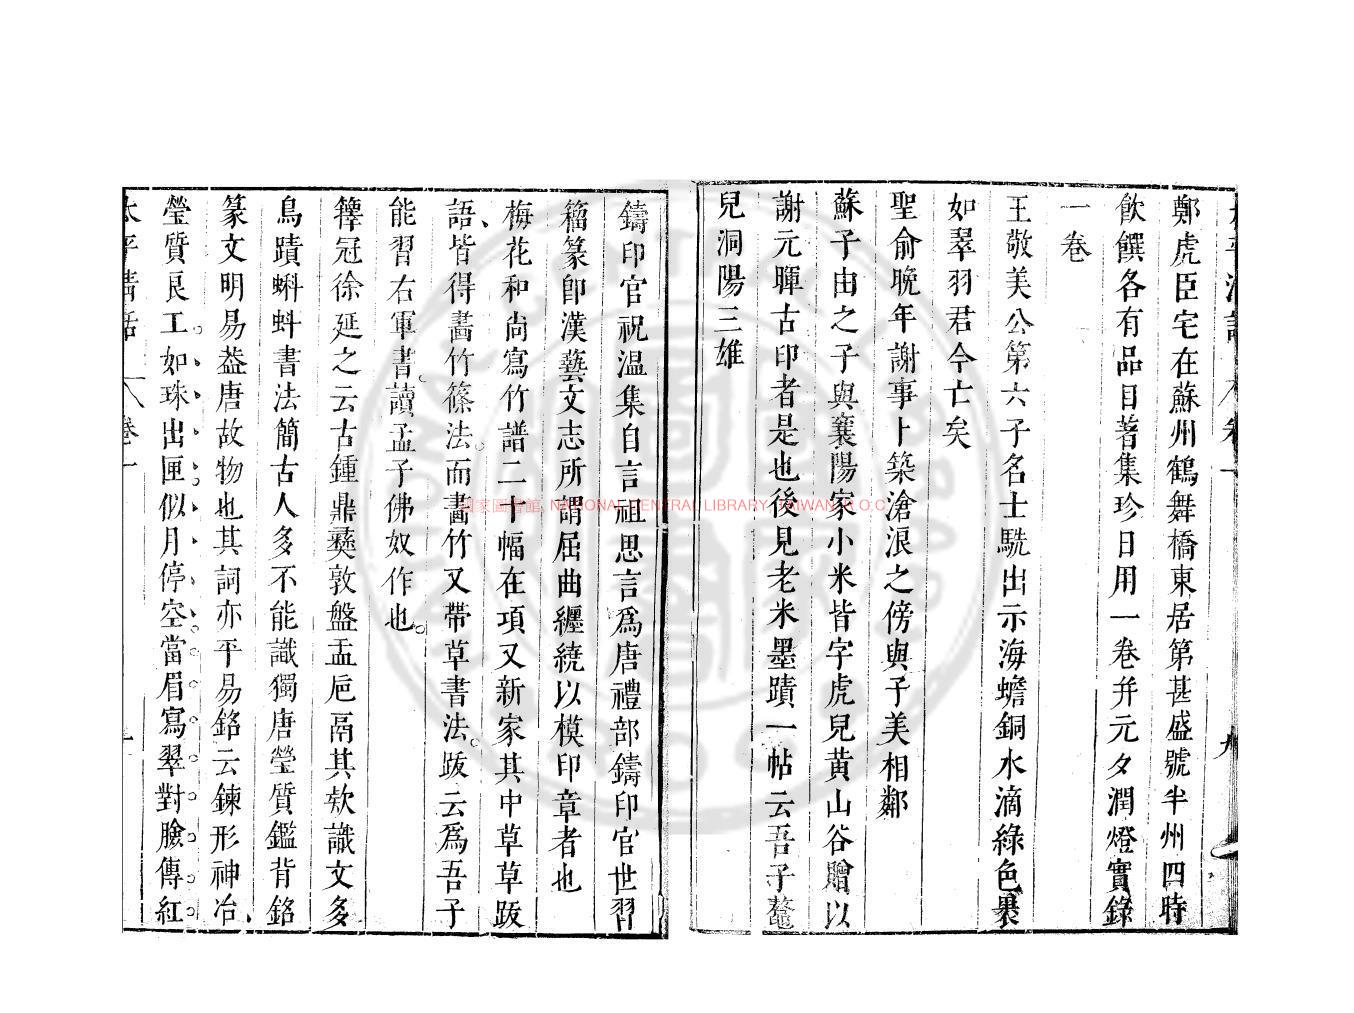 鄭虎臣宅在蘇州鶴舞橋東居第甚盛號半州四時
飲饌各有品目著集珍日用一卷并元夕潤燈實錄
一卷
王敬美公第六子名士駪出示海蟾銅水滴綠色裹
如翠羽君今亡矣
聖俞晚年謝事卜築滄浪之傍與子美相鄰
蘇子由之子與襄陽家小米皆字虎兒黃山谷贈以
謝元暉古印者是也後見老米墨蹟一帖云吾子鼇
兒洞陽三雄
鑄印官祝温集自言祖思言爲唐禮部鑄印官世習
籀篆即漢藝文志所謂屈曲纏繞以模印章者也
梅花和尚寫竹譜二十幅在項又新家其中草草跋
語皆得畵竹篠法而畵竹又帶草書法跋云爲吾子
能習右軍書讀孟子佛奴作也
鞸冠徐延之云古鍾鼎彞敦盤盂巵鬲其欵識文多
鳥蹟蝌蚪書法簡古人多不能識獨唐瑩質鑑背銘
篆文明易葢唐故物也其詞亦平易銘云鍊形神冶
瑩質良工如珠出匣似月停空當眉寫翠對臉傳紅
太平清話 卷一
國家圖書館, NATIONAL CENTRAL LIBRARY, TAIWAN, R.O.C.